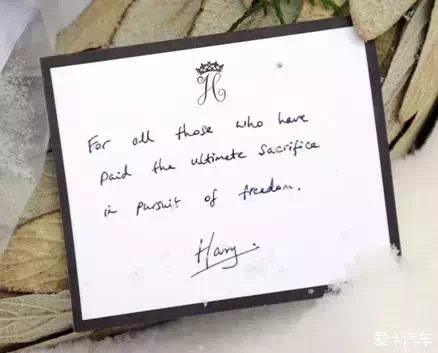 H
For all those who have
paid the ultimate sacrifice
in pursuit of freedom.
Harry.
爱卡汽车